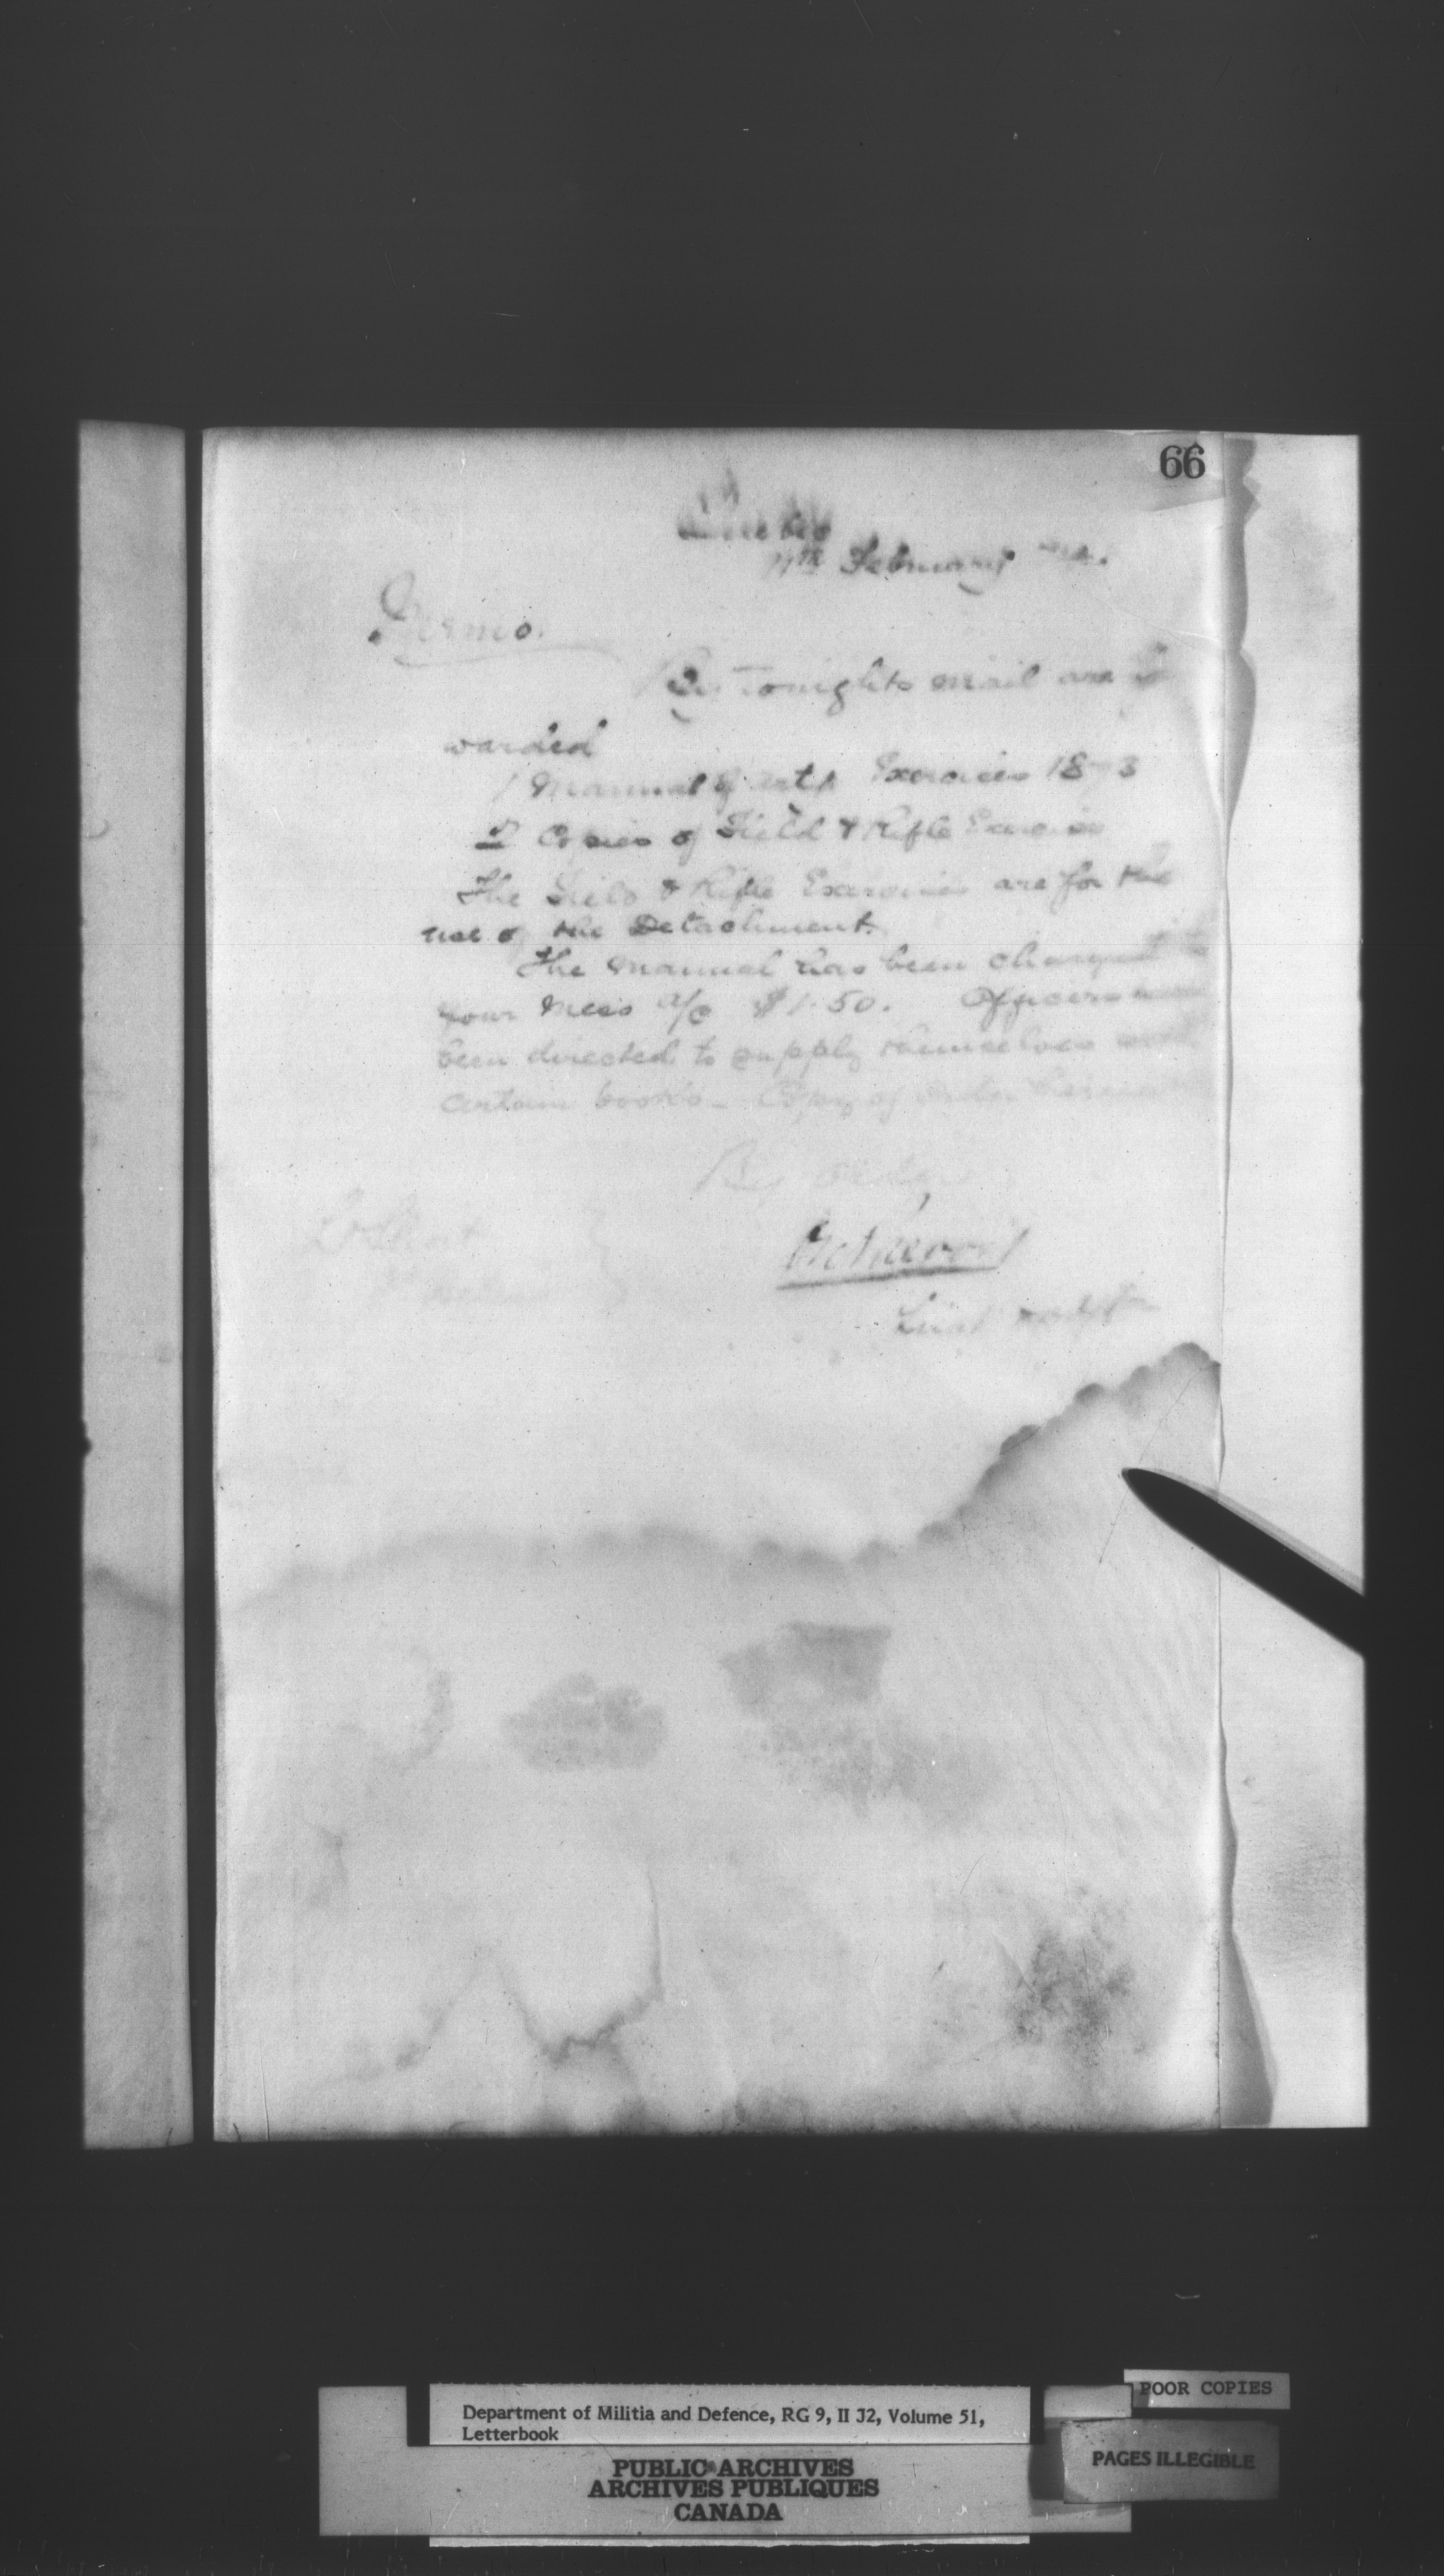 66
Quebec
11th February
Memo.
By Tonights mail are for
warded
1 Manual of Arty Exercises 1873
2 Copies of Field & Rifle Exercise
The Field & Rifle Exercises are for the
use of the Detachment.
The Manual has been charged to
your Mess a/c $1.50. Officers
been directed to supply themselves with
certain books - Copy of order
By order
Lieut
Department of Militia and Defence, RG 9, II J2, Volume 51,
Letterbook
POOR COPIES
PAGES ILLEGIBLE
PUBLIC ARCHIVES
ARCHIVES PUBLIQUES
CANADA